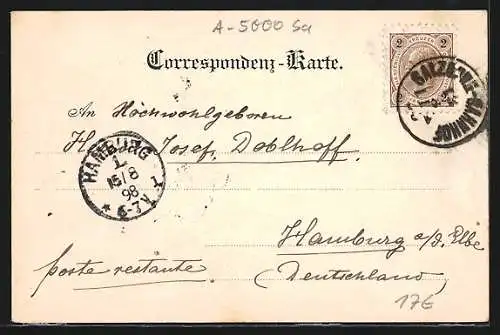 A-5000 Sa
Correspondenz-Karte.
2 KREUZER 2
SALZBURG-BAHNHOF
An Hochwohlgeboren
Josef Doblhoff
HAMBURG
1.
15/8
98
* 6-7 N
Hamburg a/d. Elbe
poste restante.
(Deutschland)
17€